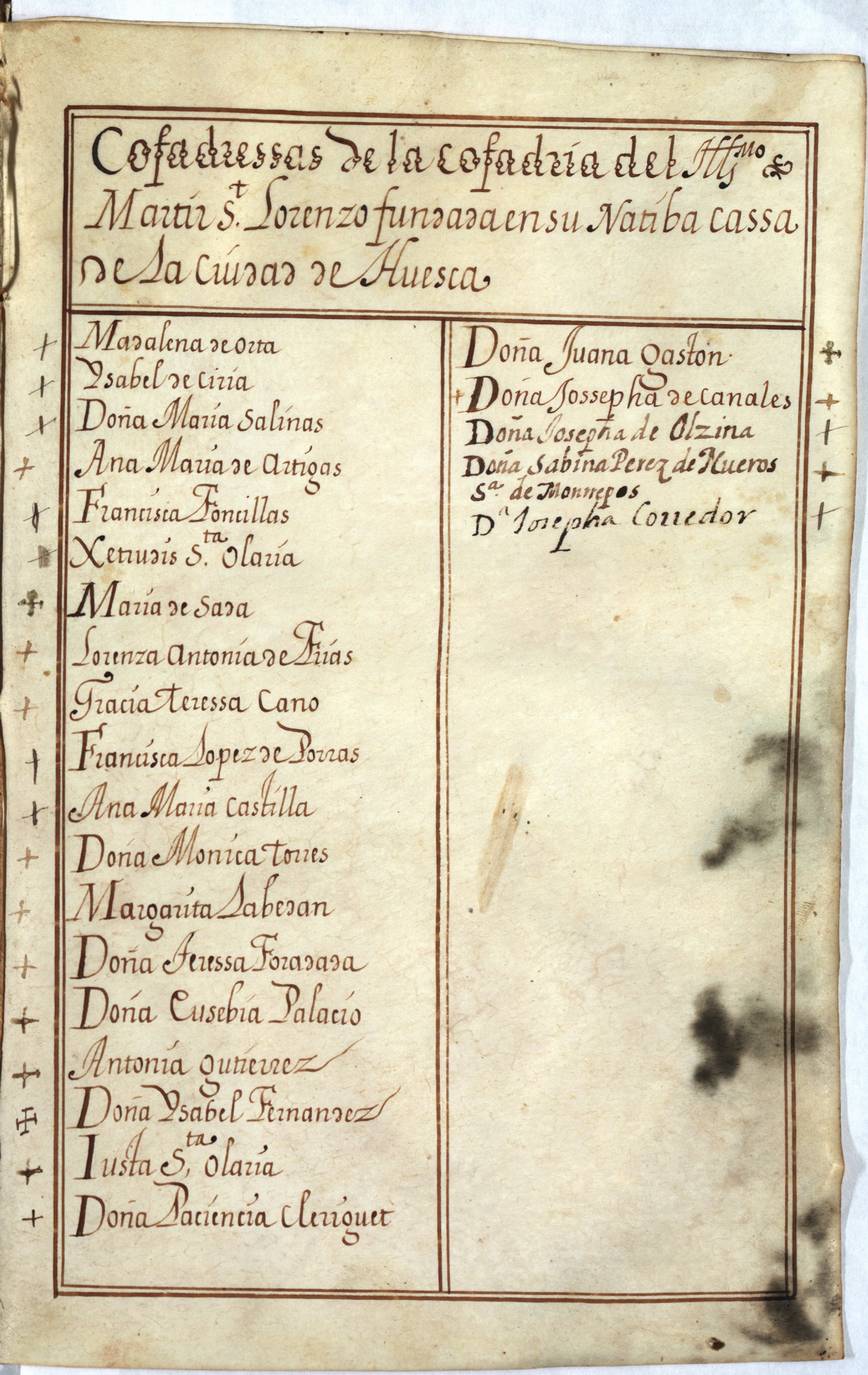 Cofadressas de la cofadria del Illmo
Martir St. Lorenzo fundada en su Natiba cassa
de la Ciudad de Huesca
Madalena de orta
Ysabel de Ciria
Doña Maria Salinas
Ana Maria de Artigas
Francisca Foncillas
Xetrudis S.ta Olaria
Maria de Sada
Lorenza Antonia de Frias
Gracia Teressa Cano
Francisca Lopez de Porras
Ana Maria Castilla
Doña Monica Torres
Margarita Labedan
Doña Teressa Foradada
Doña Eusebia Palacio
Antonia Gutierrez
Doña Ysabel Fernandez
Iusta S.ta Olaria
Doña Paciencia Cleriguet
Doña Juana Gaston
Doña Jossepha de Canales
Doña Josepha de Olzina
Doña Sabina Perez de Nueros
Sa. de Monrrepos
Da Josepha Corredor